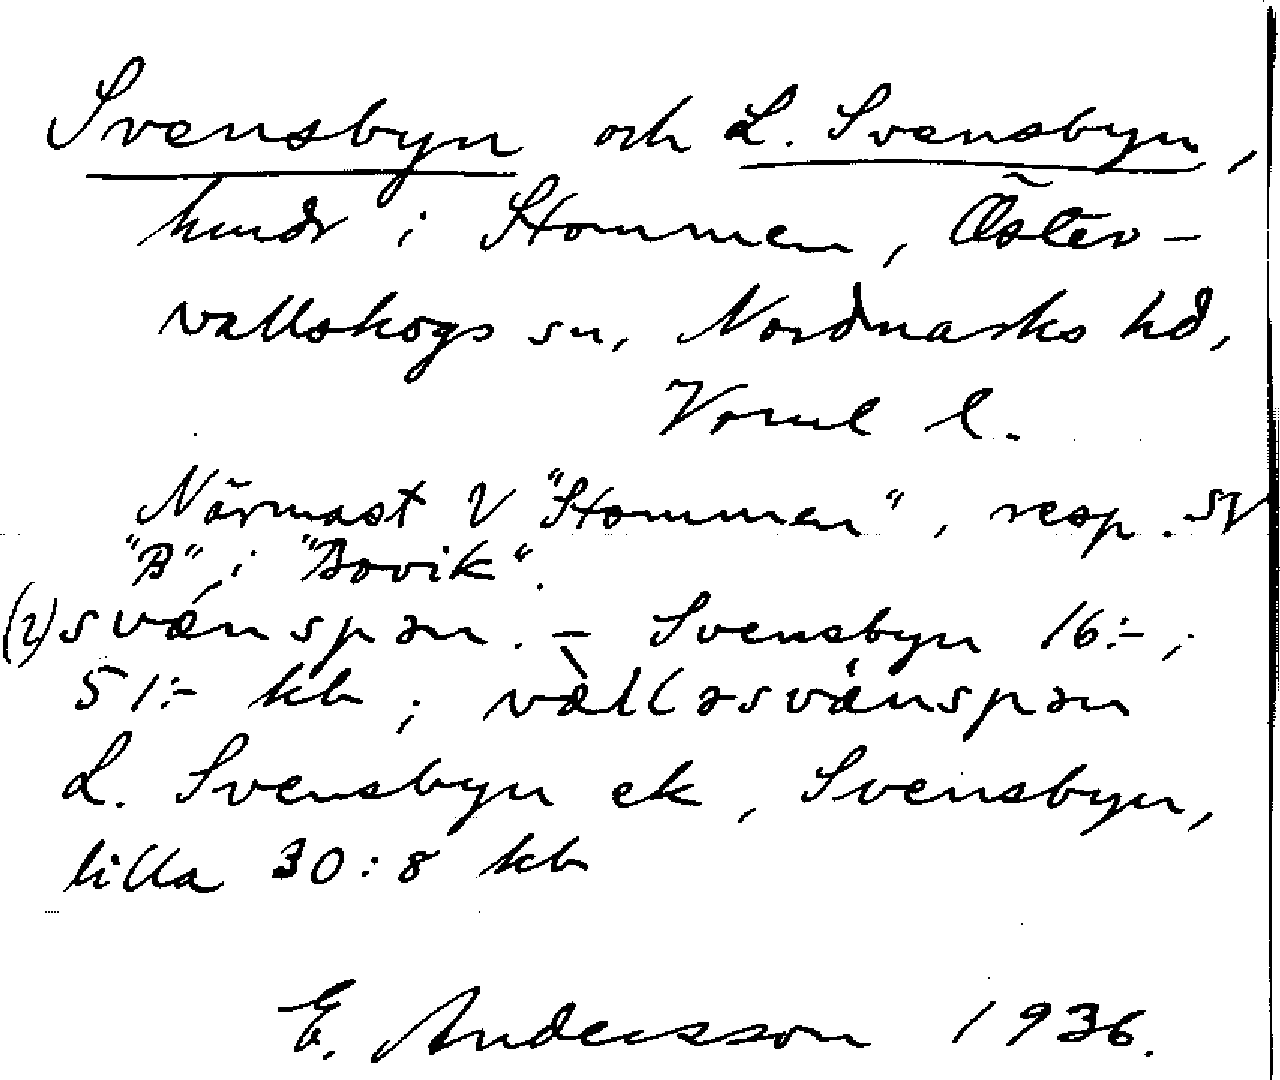 Svensbyn och L. Svensbyn,
hmdr i Stommen, Öster-
vallskogs sn, Nordmarks hd,
Vrml l.
Närmast V "Stommen", resp. SV
"B" i "Bovik".
(i) svǽnspən. – Svensbyn 16:-;
51:- kb; væ̀llǝsvǽnspən
L. Svensbyn ek, Svensbyn,
lilla 30:8 kb
E. Andersson 1936.